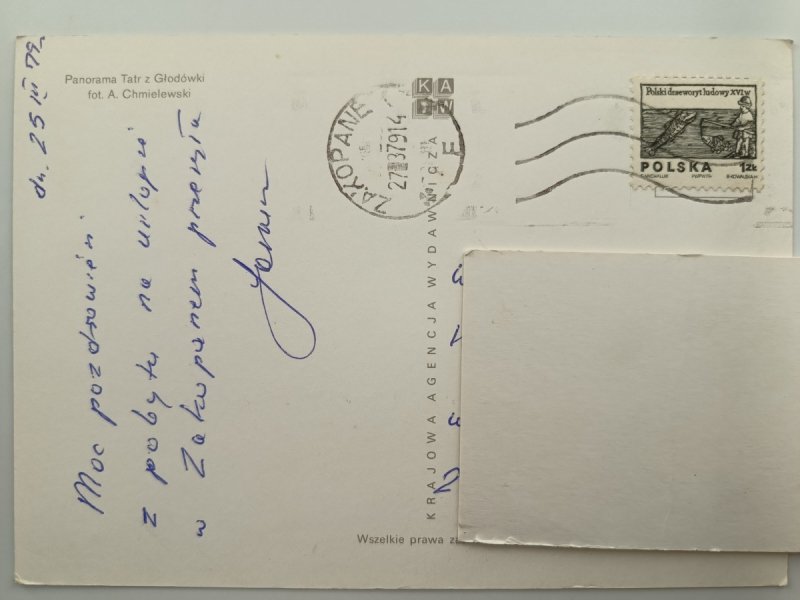 Panorama Tatr z Głodówki
fot. A. Chmielewski
dn. 25 III 79.
Moc pozdrowień
z pobytu na urlopie
w Zakopanem przesyła
KRAJOWA AGENCJA WYDAWNICZA
KAW
ZAKOPANE
Polski drzeworyt ludowy XVI w
POLSKA 1ZŁ
Wszelkie prawa za